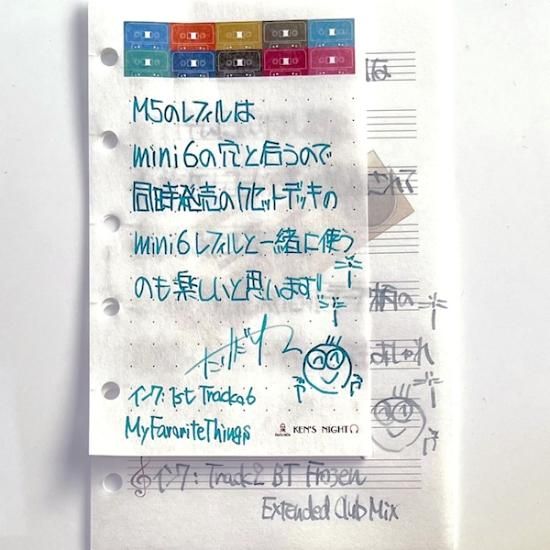 M5のレフィルは
mini6の穴と合うので
同時発売のカセットデッキの
mini6レフィルと一緒に使う
のも楽しいと思います!!
ただわ
インク BT Track06
MyFavoriteThings
KEN'S NIGHT
は
されて
柄の
おしゃれ
インク: Track2 BT Frozen
Extended Club Mix